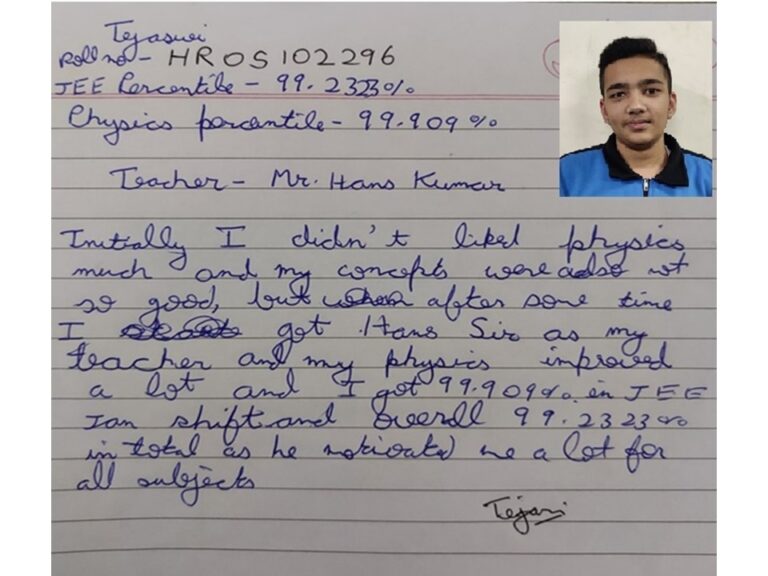 Tejaswi
Roll no - HR05102296
JEE Percentile - 99.2323%
Physics percentile - 99.909%
Teacher - Mr. Hans Kumar
Initially I didn't liked physics
much and my concepts were also not
so good, but after some time
I got Hans Sir as my
teacher and my physics improved
a lot and I got 99.909% in JEE
Jan shift and overall 99.2323%
in total as he motivated me a lot for
all subjects